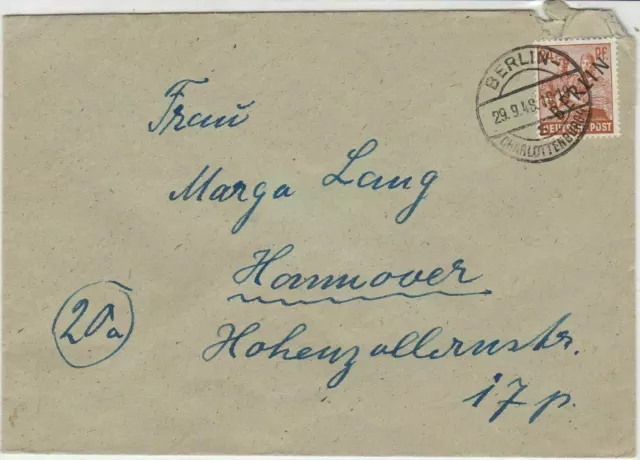 BERLIN-
29.9.48
CHARLOTTENBURG
PF
BERLIN
DEUTSCHE POST
Frau
Marga Lang
Hannover
20a
Hohenzollernstr.
17 p.